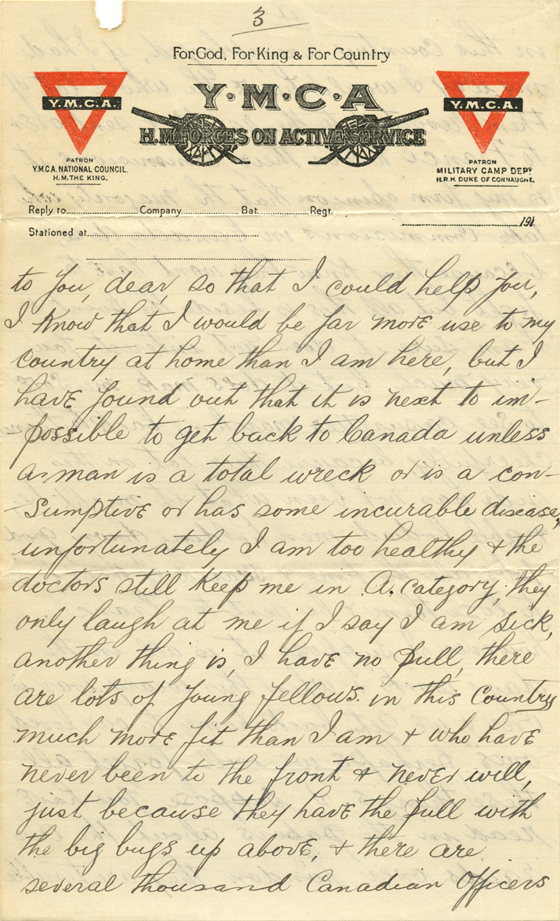 3
For God, For King & For Country
Y·M·C·A
H.M. FORCES ON ACTIVE SERVICE
Y.M.C.A.
PATRON
Y.M.C.A. NATIONAL COUNCIL.
H.M. THE KING.
Y.M.C.A.
PATRON
MILITARY CAMP DEPT
H.R.H. DUKE OF CONNAUGHT.
Reply to Company Bat. Regt.
191
Stationed at
to you, dear, so that I could help you,
I know that I would be far more use to my
country at home than I am here, but I
have found out that it is next to im-
-possible to get back to Canada unless
a man is a total wreck or is a con-
-sumptive or has some incurable disease,
unfortunately I am too healthy & the
doctors still keep me in A. category, they
only laugh at me if I say I am sick,
another thing is, I have no pull, there
are lots of young fellows. in this Country
much more fit than I am & who have
never been to the front & never will,
just because they have the pull with
the big bugs up above, & there are
several thousand Canadian Officers